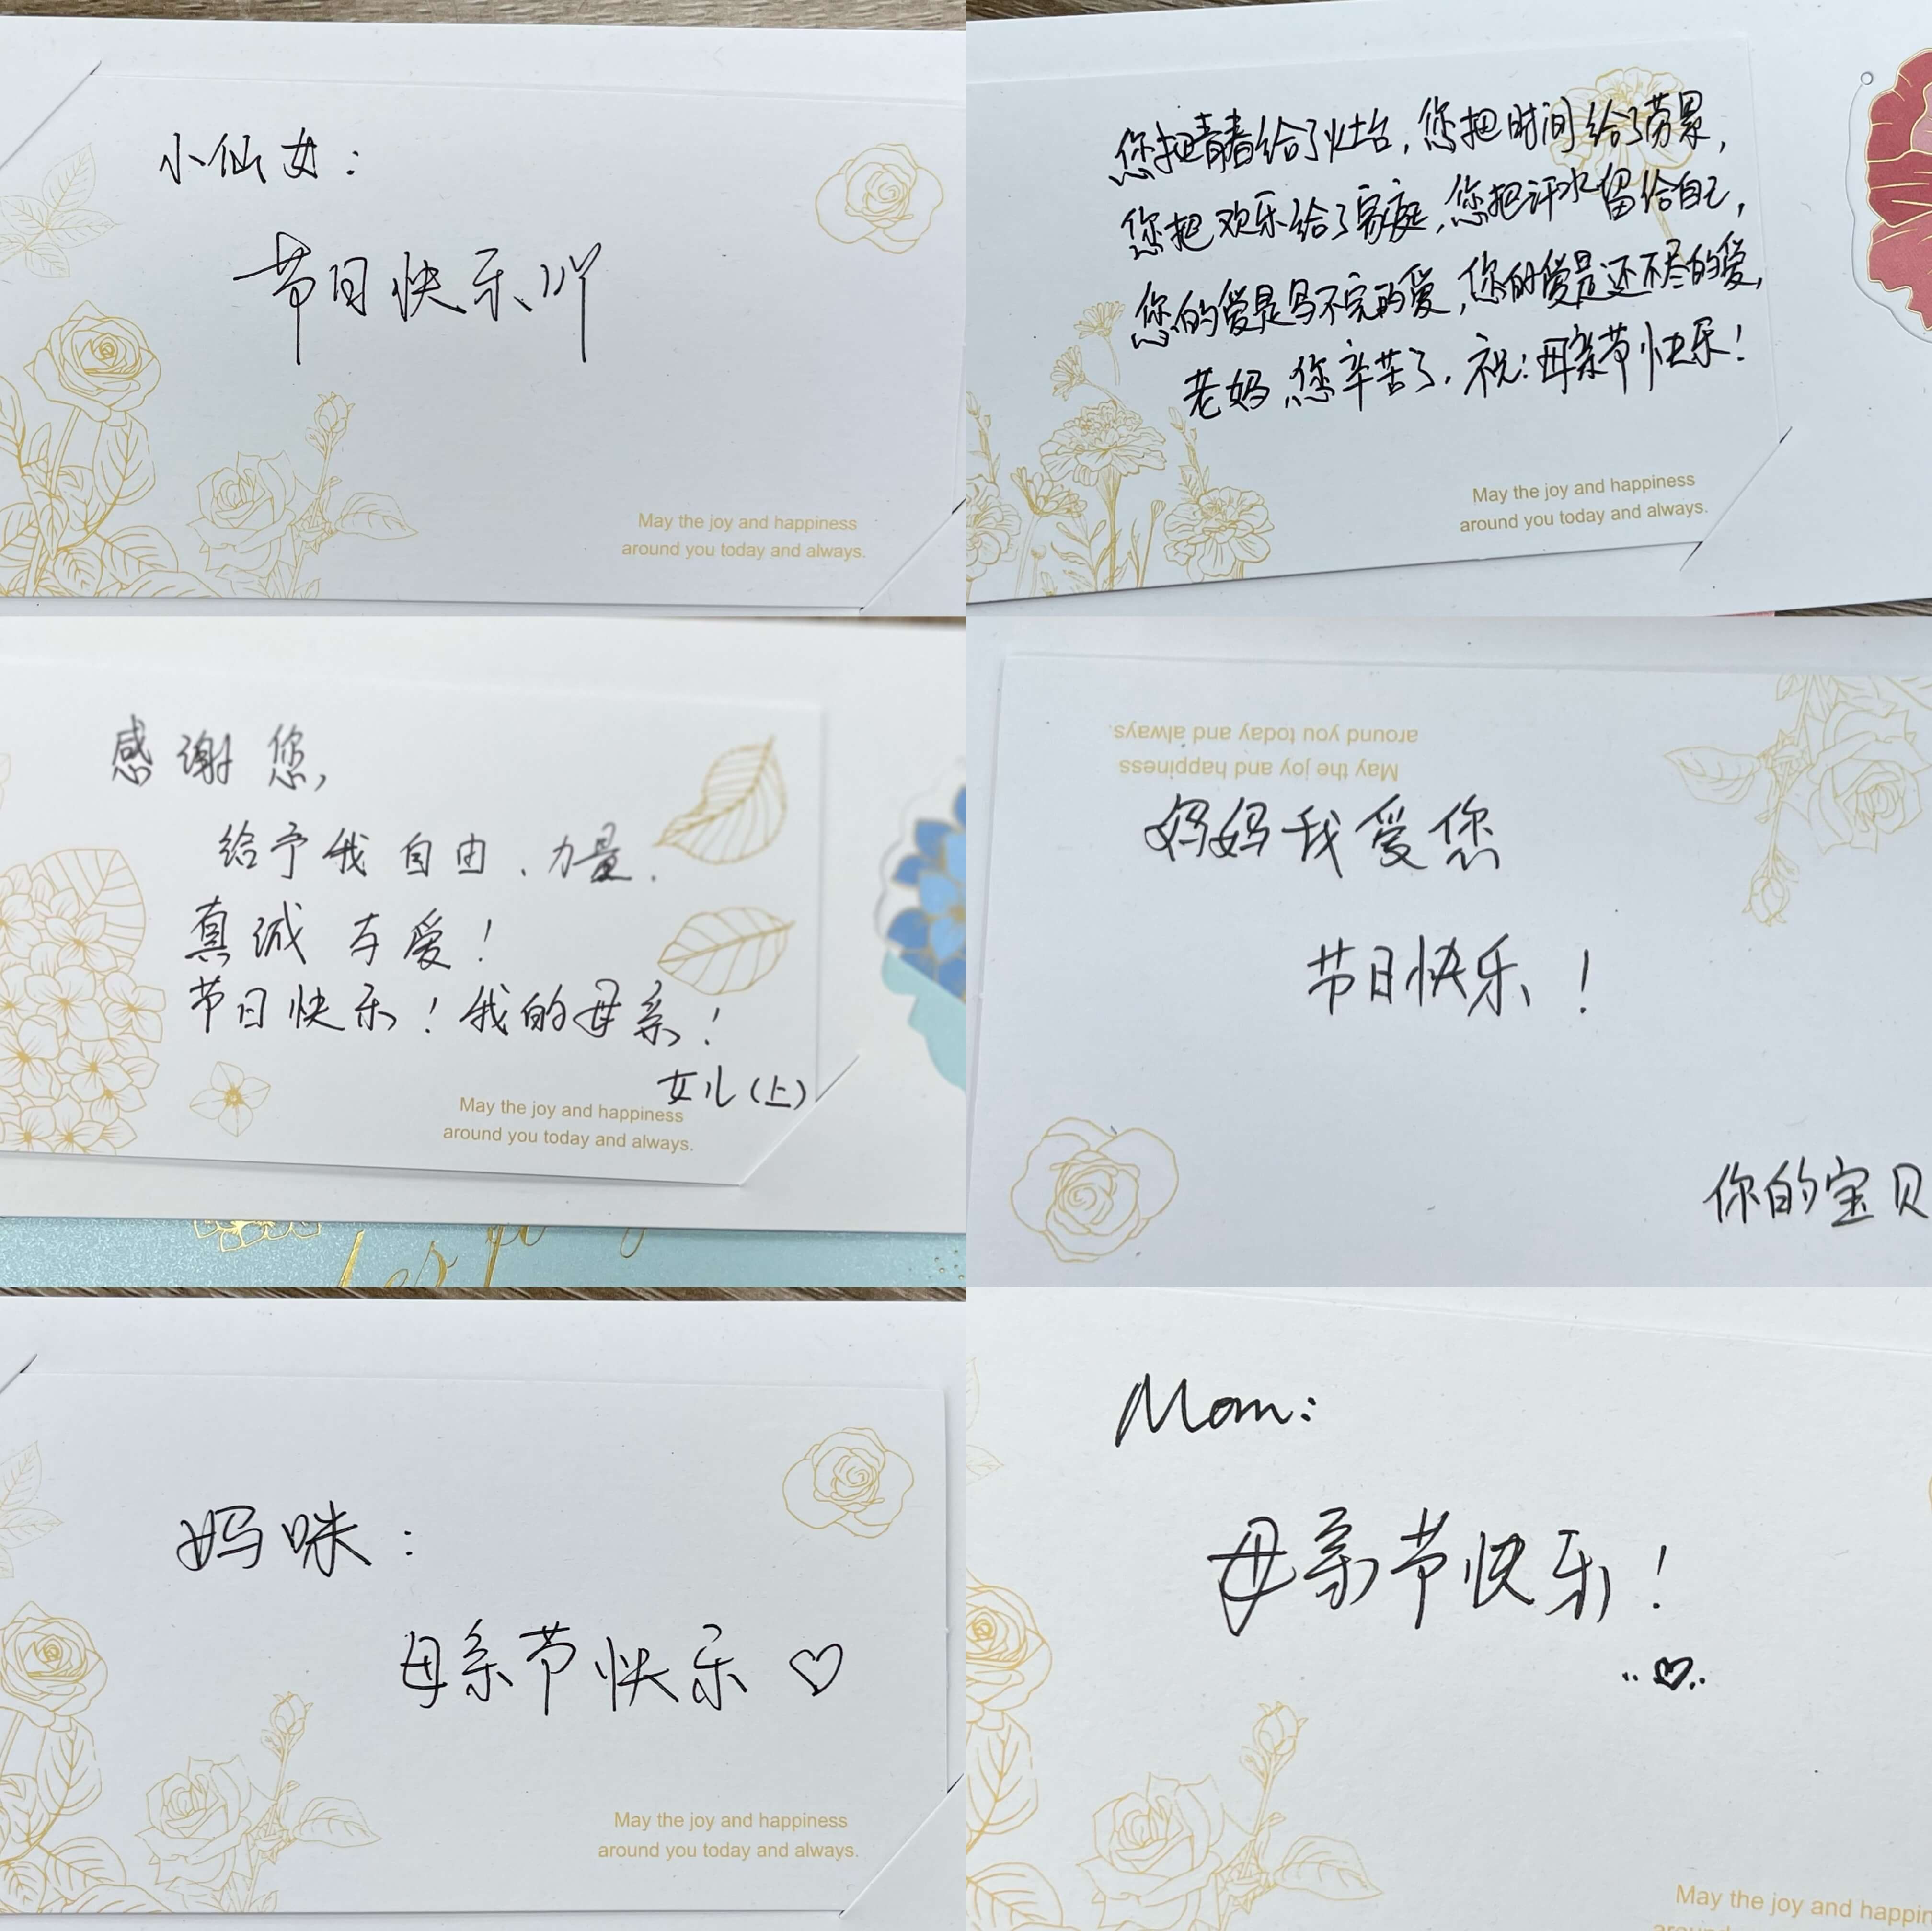 小仙女：
节日快乐吖
May the joy and happiness
around you today and always.
您把青春给了灶台，您把时间给了劳累，
您把欢乐给了家庭，您把汗水留给自己，
您的爱是写不完的爱，您的爱是还不尽的爱，
老妈，您辛苦了，祝：母亲节快乐！
May the joy and happiness
around you today and always.
感谢您，
给予我自由、力量、
真诚与爱！
节日快乐！我的母亲！
女儿（上）
May the joy and happiness
around you today and always.
May the joy and happiness
around you today and always.
妈妈我爱您
节日快乐！
你的宝贝
妈咪：
母亲节快乐♡
May the joy and happiness
around you today and always.
Mom:
母亲节快乐！
May the joy and happin